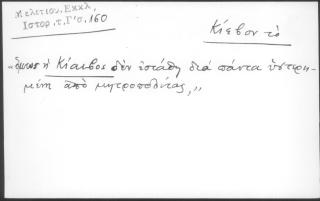 Μελετίου, Εκκλ,
Ιστορ, τ, Γ' σ, 160
Κίεβον τὸ
„ὅμως ἡ Κίαιβος δὲν ἐστάθη διὰ πάντα ὑστερη-
μένη ἀπὸ μητροπολίτας,„